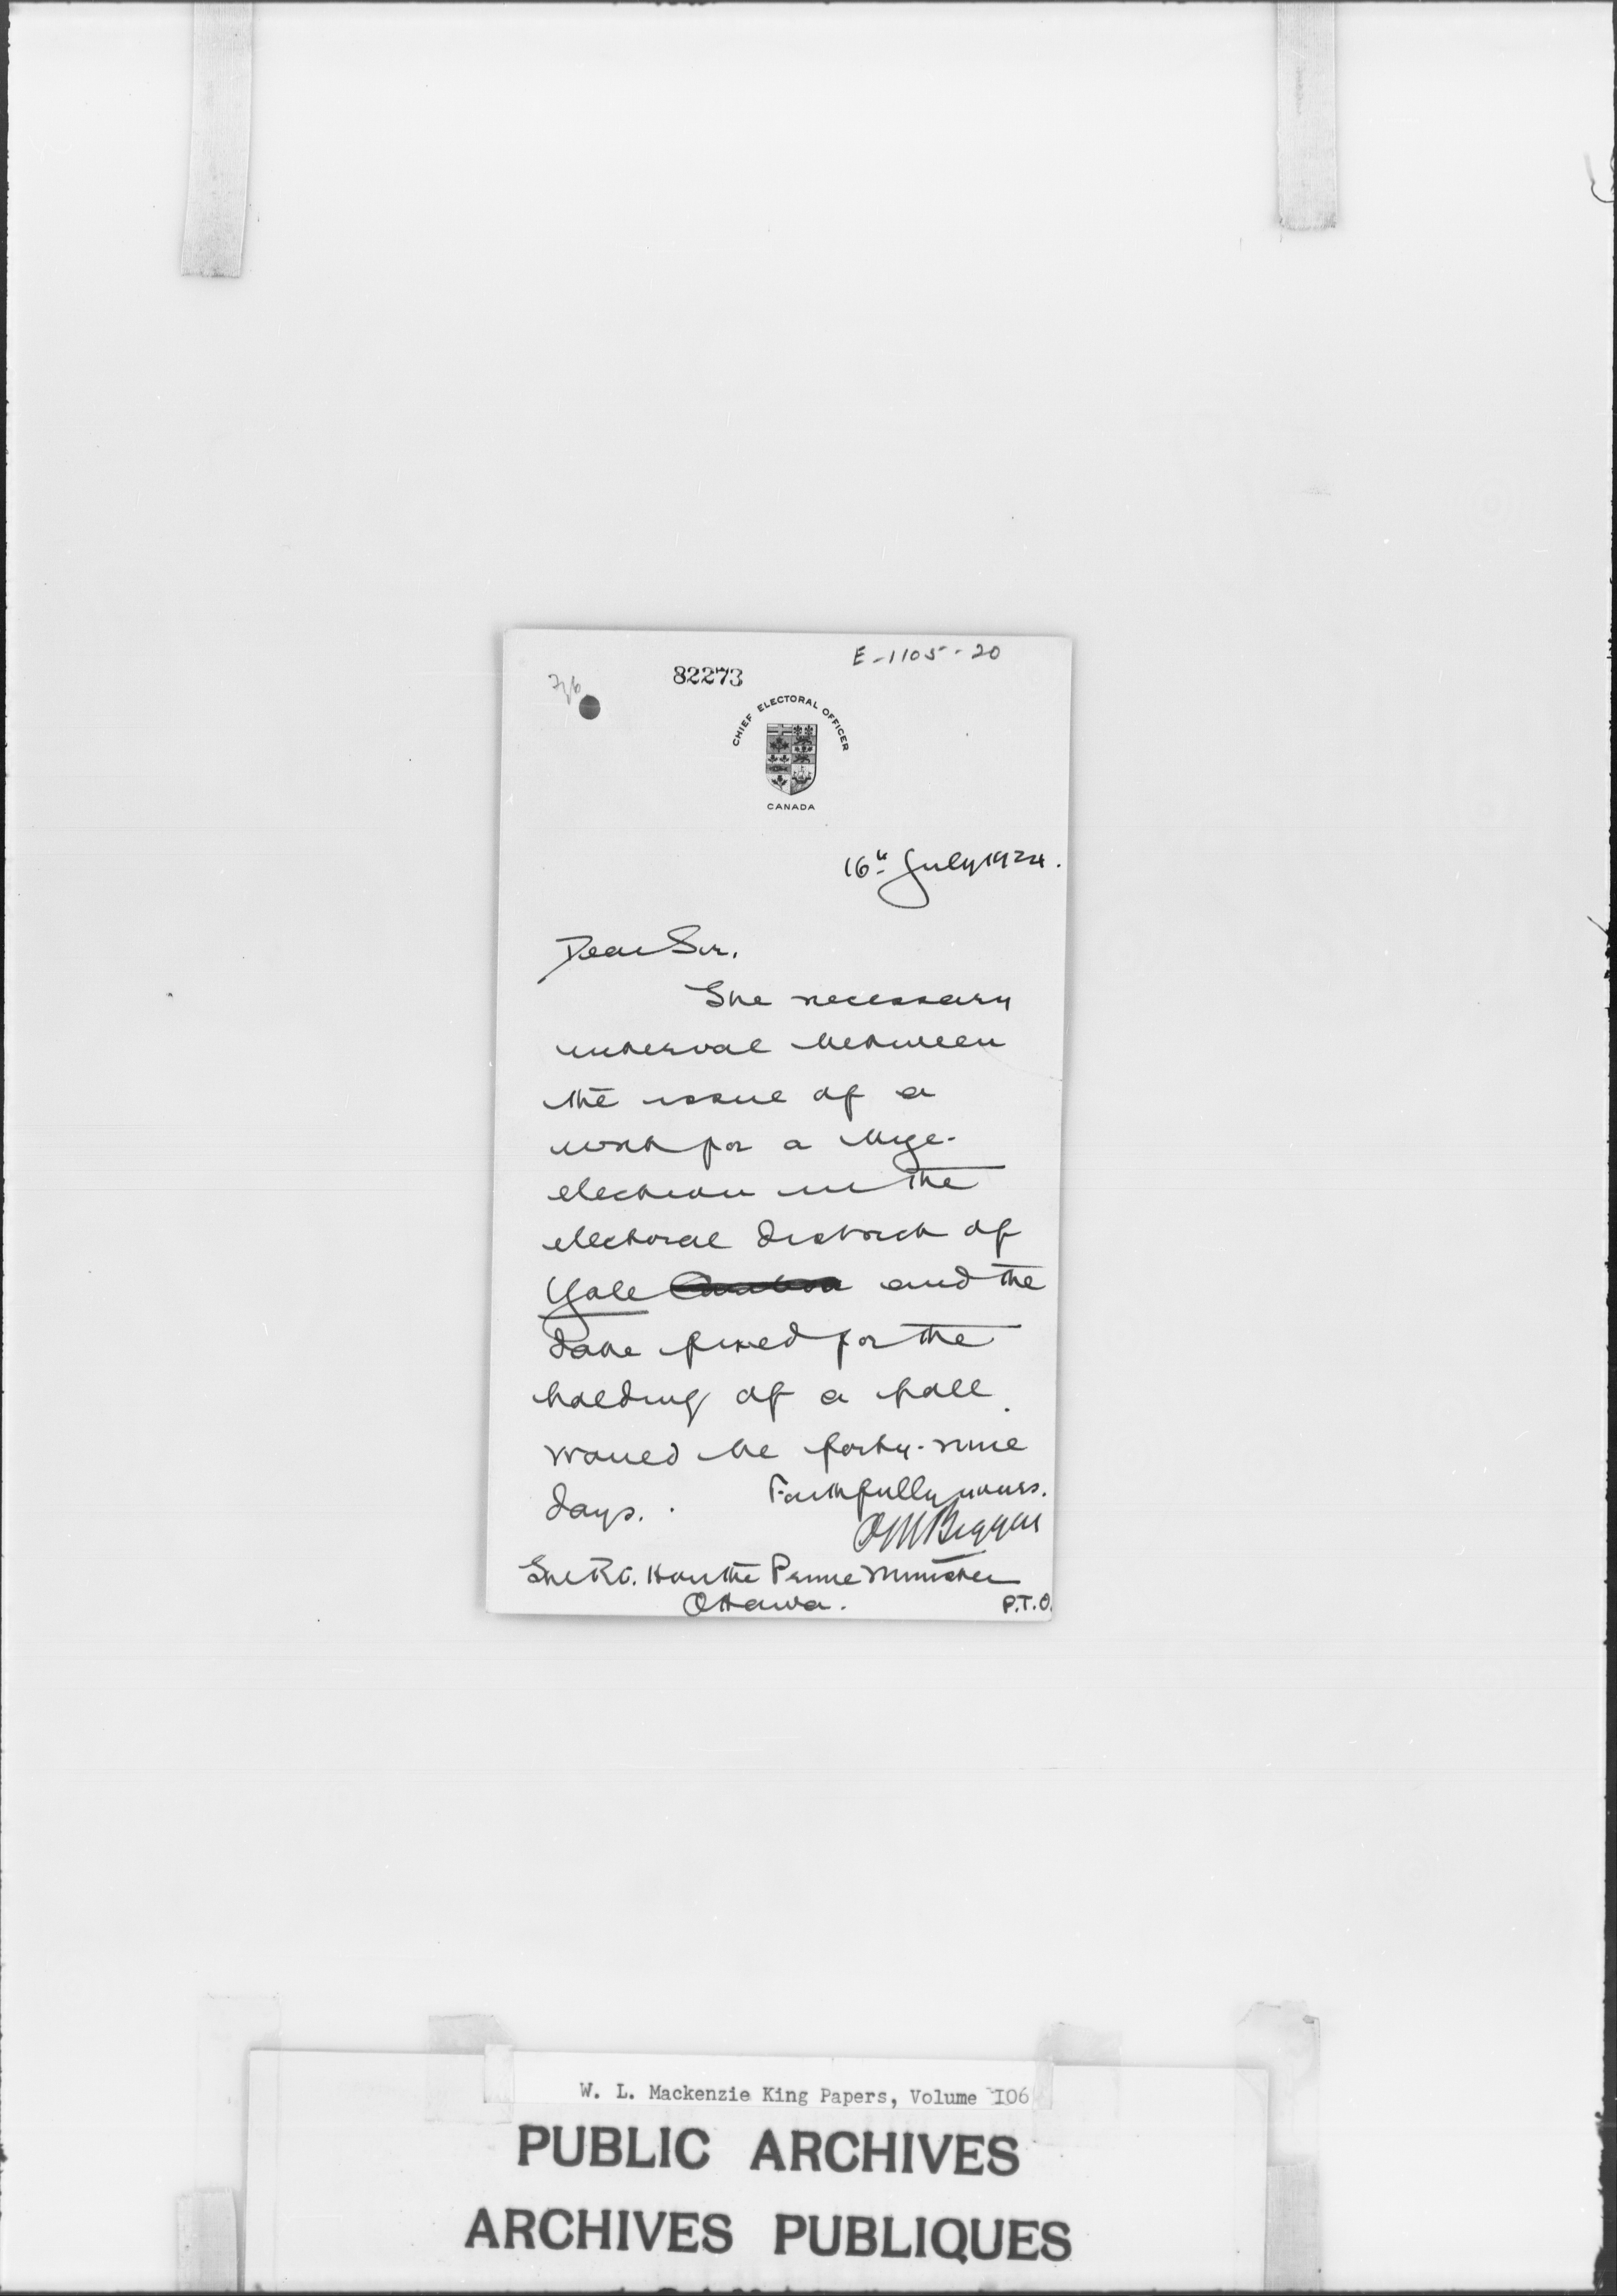 E-1105-20
82273
CHIEF ELECTORAL OFFICER
CANADA
16th July 1924.
Dear Sir,
The necessary
interval between
the issue of a
writ for a bye-
election in the
electoral district of
Yale and the
date fixed for the
holding of a poll
would be forty-nine
days.
Faithfully yours.
O M Biggar
The Rt. Hon the Prime Minister
Ottawa.
P.T.O.
W. L. Mackenzie King Papers, Volume 106
PUBLIC ARCHIVES
ARCHIVES PUBLIQUES